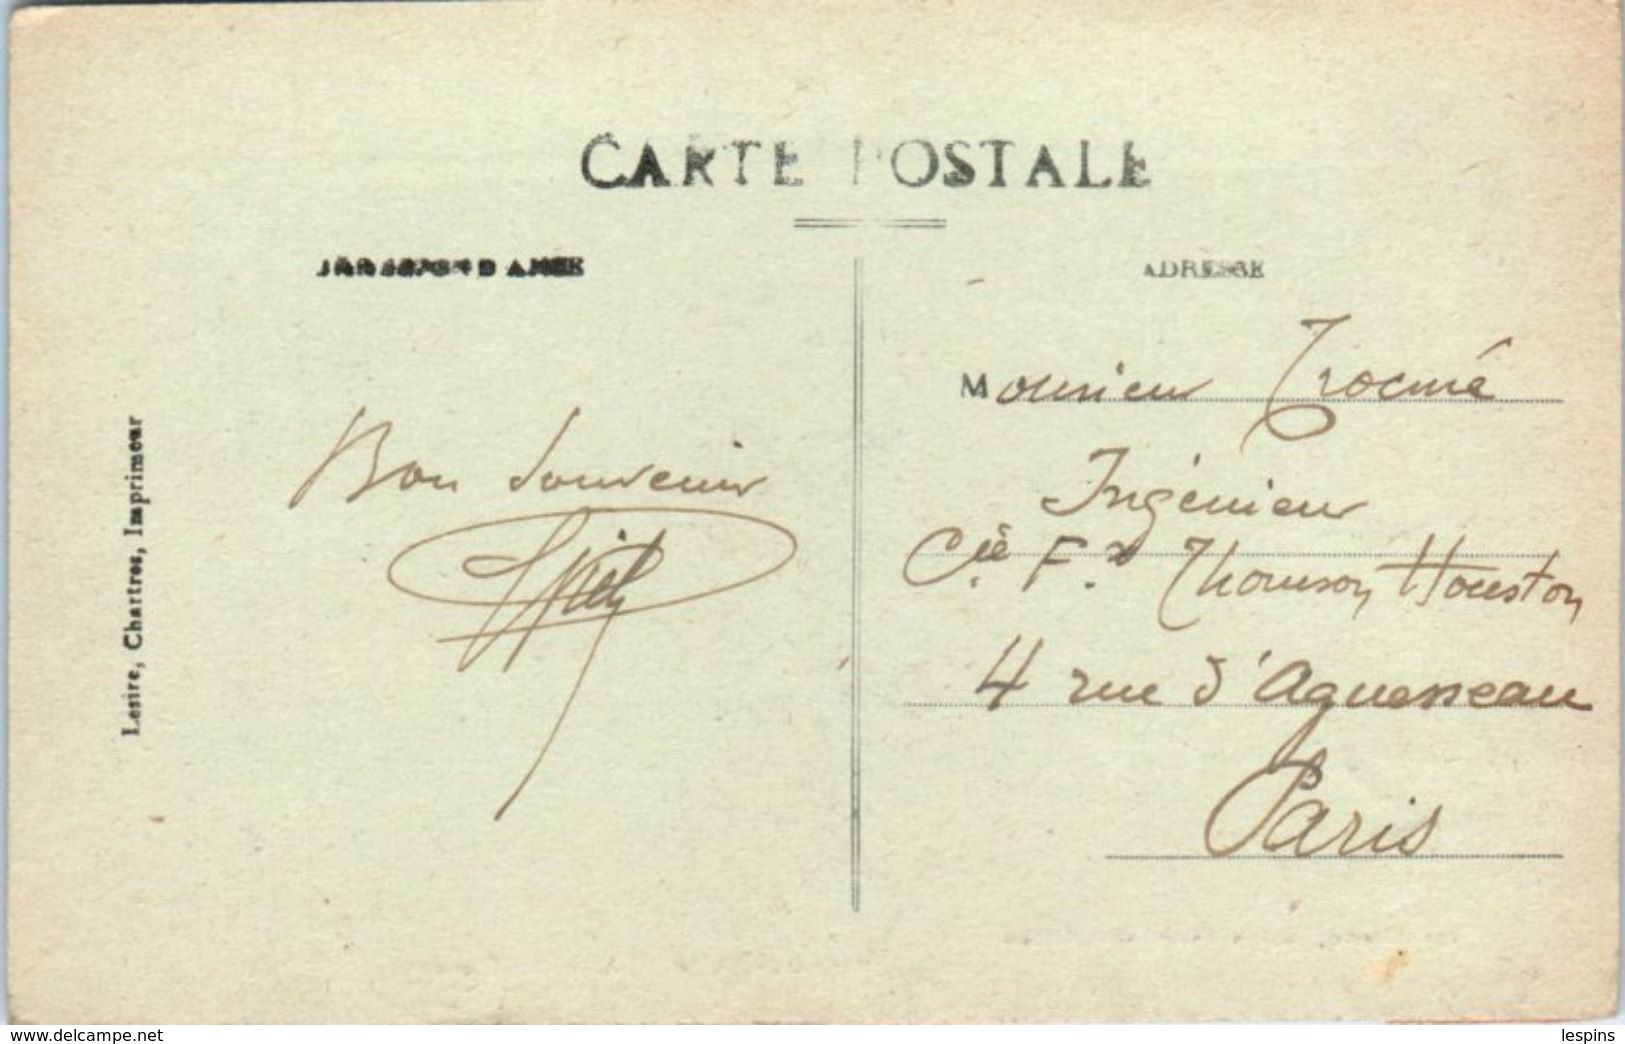 CARTE POSTALE
ADRESSE
Lesire, Chartres, Imprimeur
Bon Souvenir
Monsieur Trocmé
Ingénieur
Cie F.se Thomson Houston
4 rue d'Aguesseau
Paris
www.delcampe.net
lespins